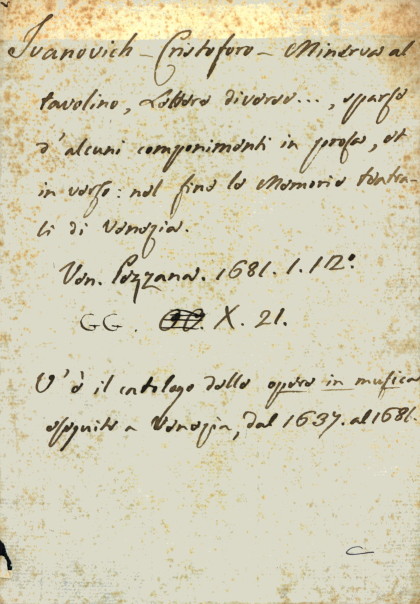 Ivanovich - Cristoforo - Minerva al
tavolino, Lettere diverse..., sparse
d'alcuni componimenti in prosa, et
in verso: nel fine le Memorie teatra-
li di Venezia.
Ven. Pezzana. 1681. 1. 112º
GG. X. 21.
V'è il catalogo delle opere in musica
eseguite a Venezia, dal 1637. al 1681.